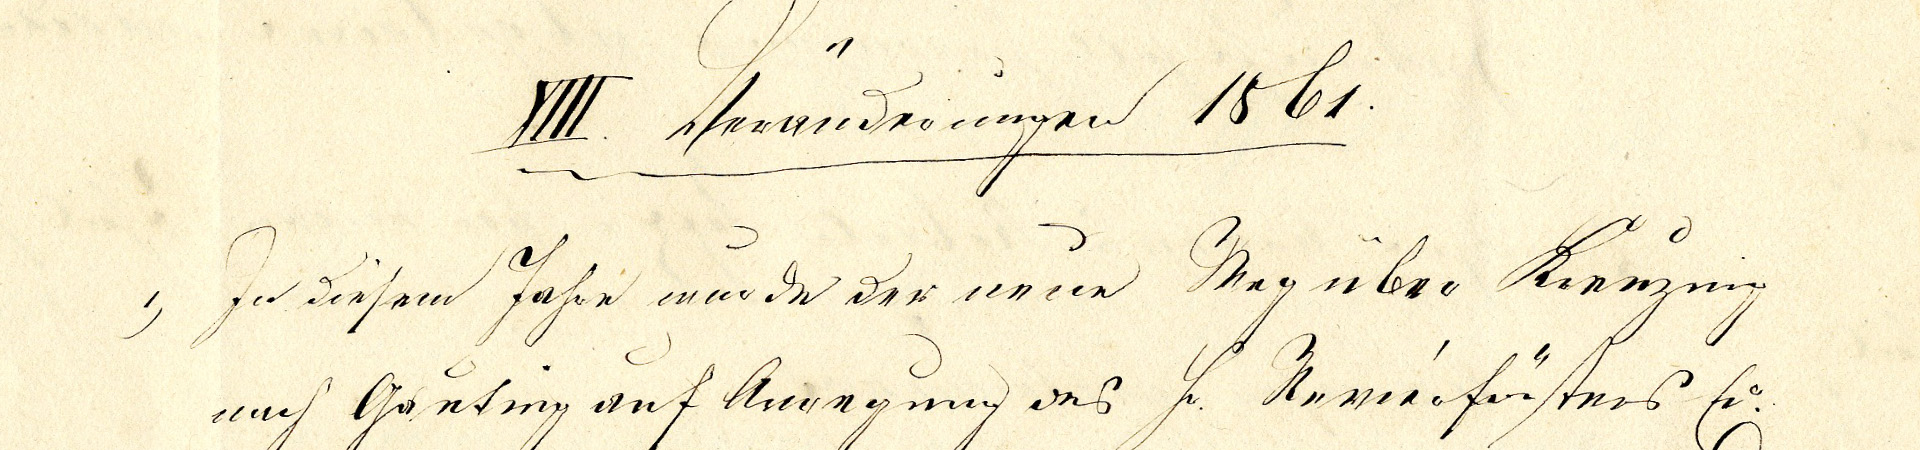 XIII. Veränderungen 1861.
1, In diesem Jahre wurde der neue Weg über Kreuzing
nach Gauting auf Anregung des H. Revierförsters